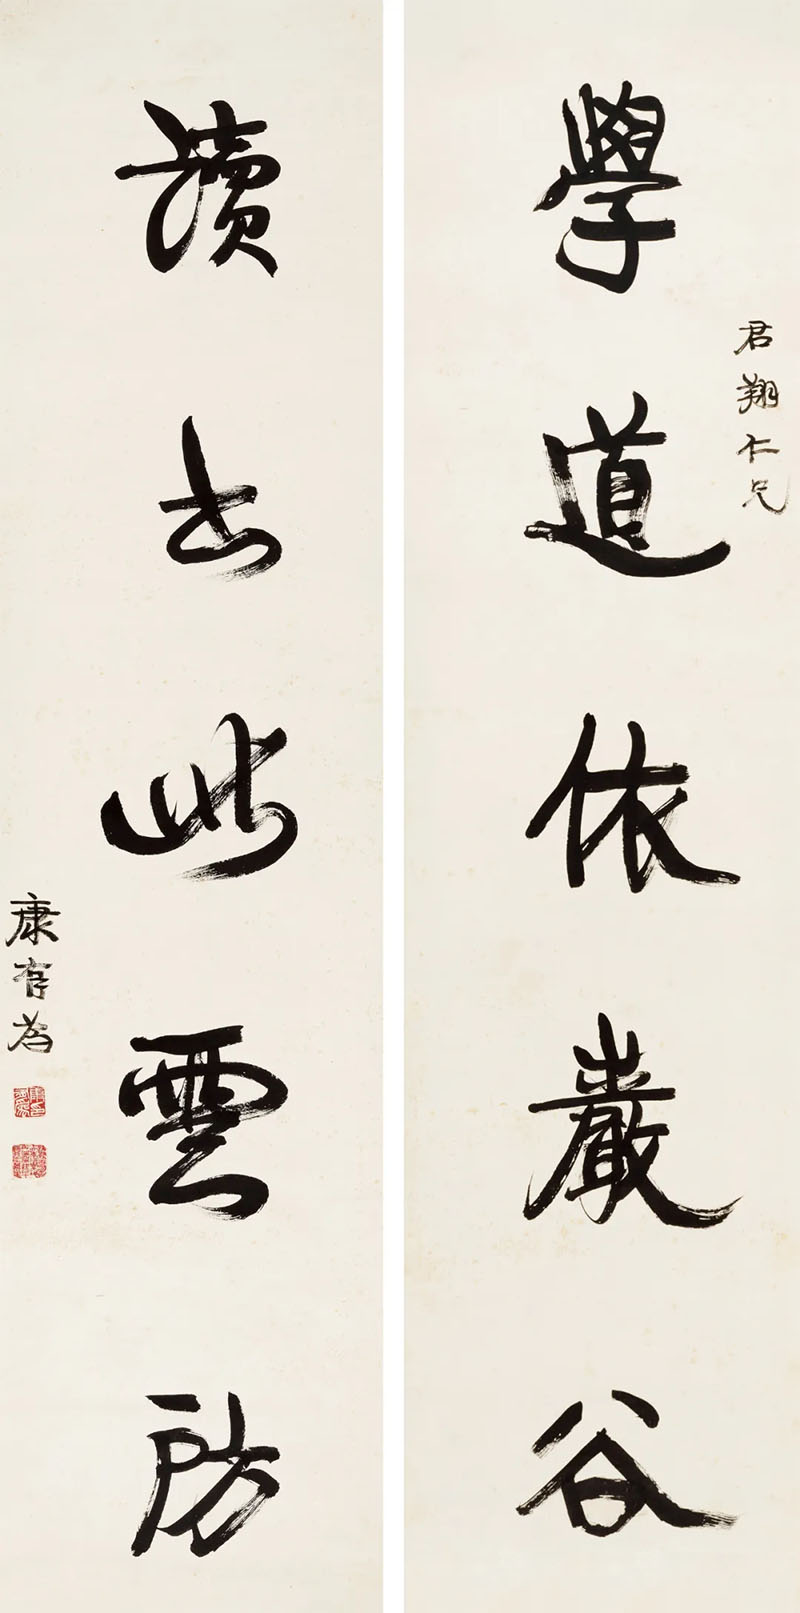 君翔仁兄
學道依巖谷
讀書此雲房
康有為